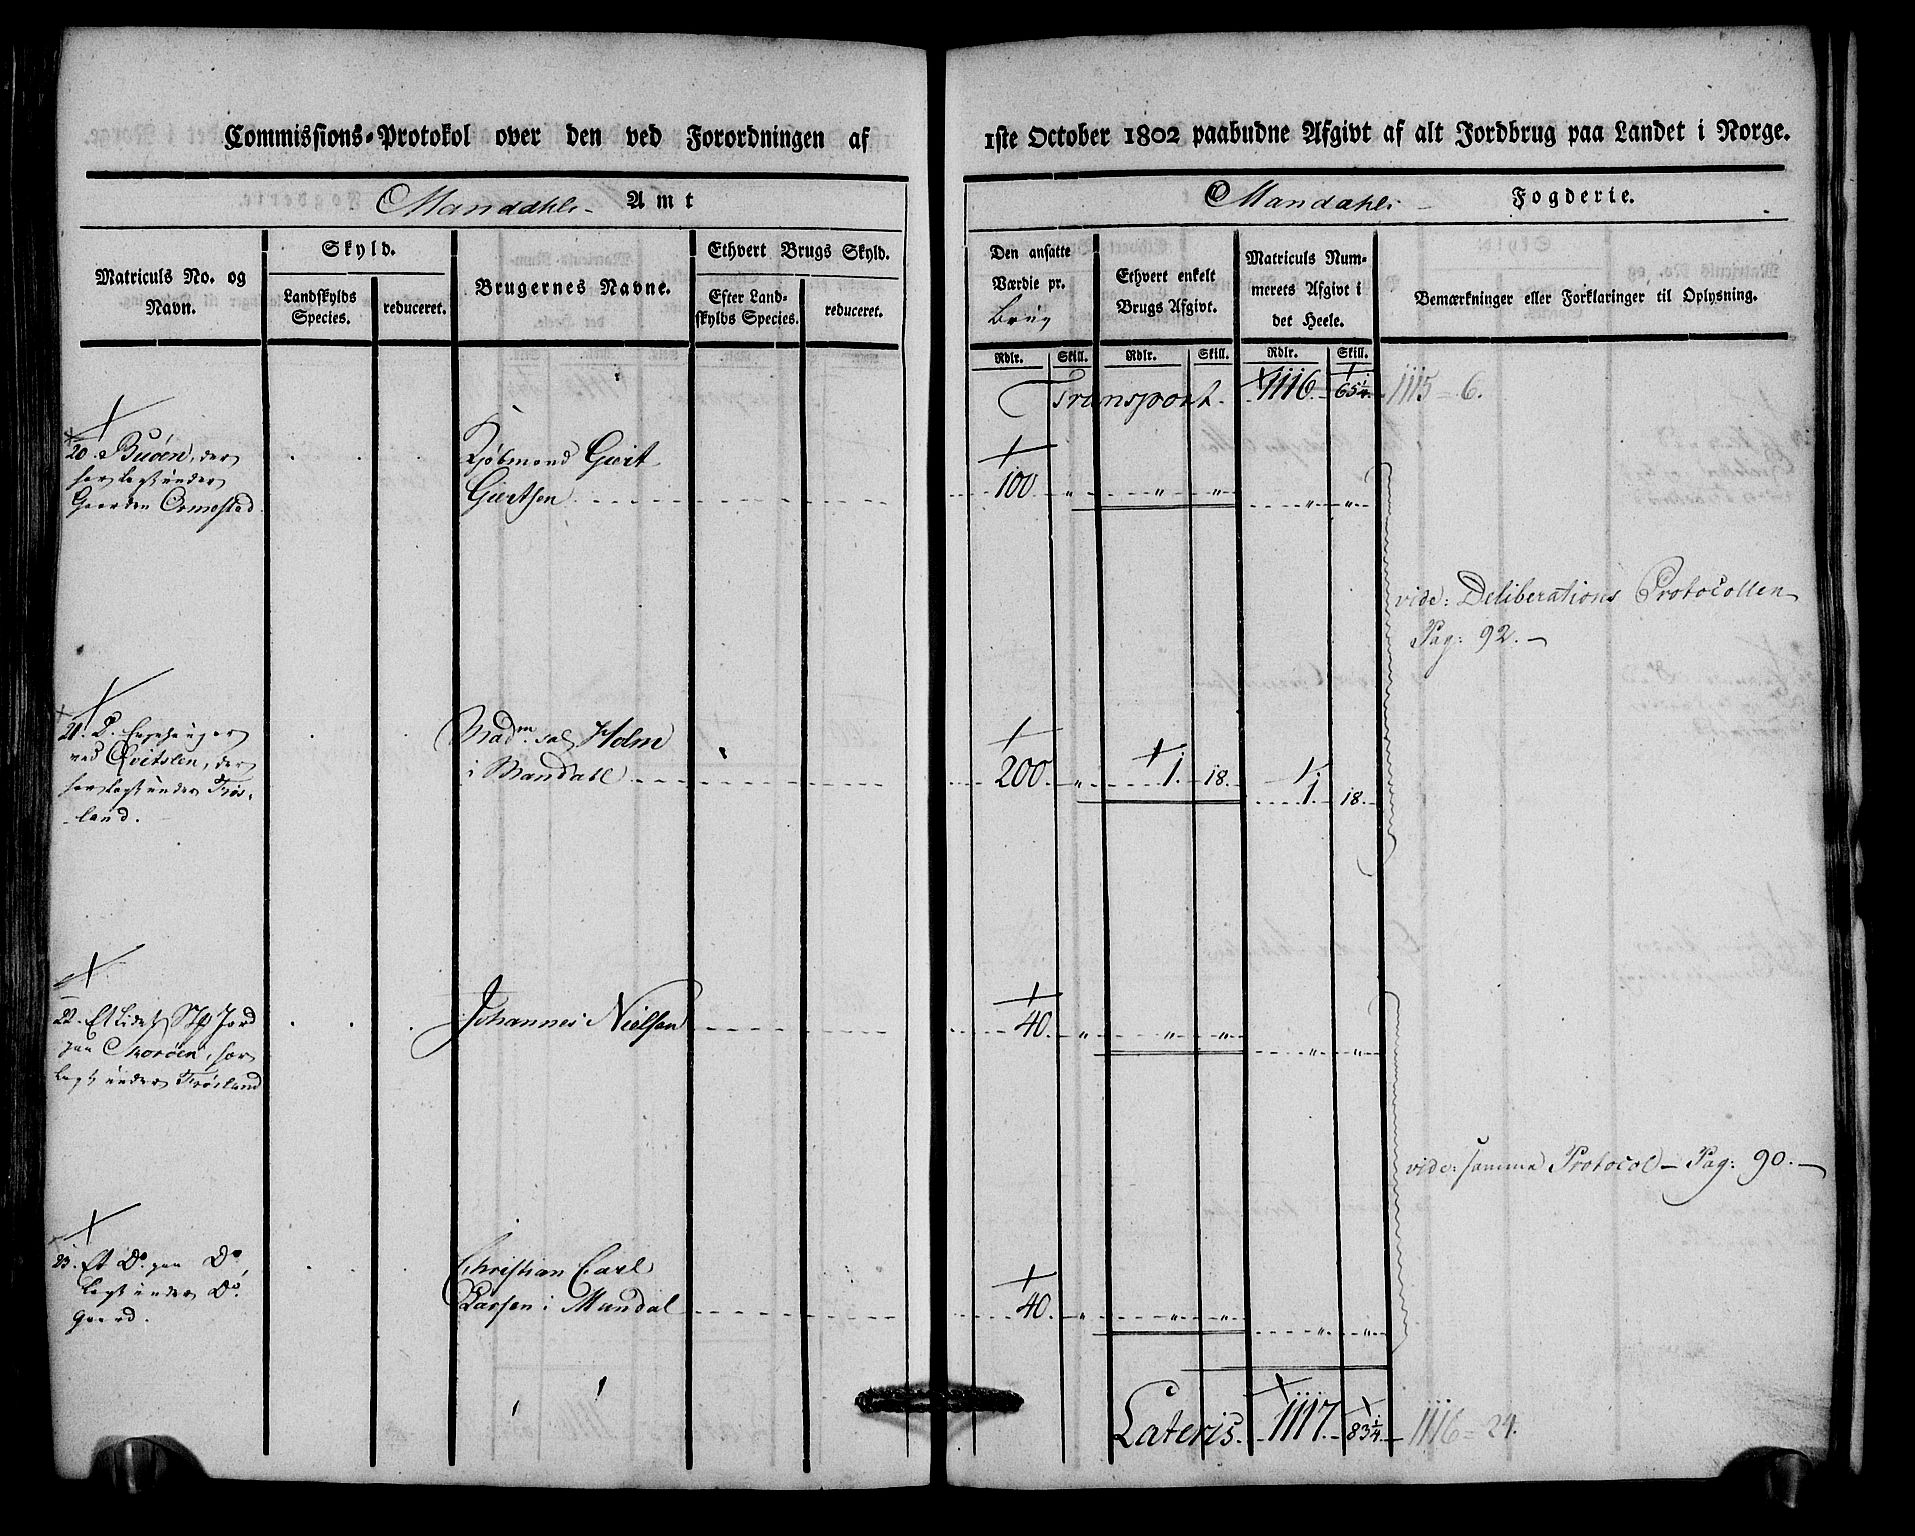 Commissions-Protokol over den ved Forordningen af 1ste October 1802 paabudne Afgivt af alt Jordbrug paa Landet i Norge.
Mandahls Amt
Mandahls Fogderie.
Matriculs No. og Navn.
Skyld.
Landskylds Species.
reduceret.
Brugernes Navne.
Ethvert Brugs Skyld.
Efter Landskylds Species.
reduceret.
Den ansatte Værdie pr. Brug
Ethvert enkelt Brugs Afgivt.
Matriculs Nummerets Afgivt i det Heele.
Bemærkninger eller Forklaringer til Oplysning.
Rdlr. Skill. Rdlr. Skill. Rdlr. Skill.
Transport 1116. 65¼. 1115 = 6.
20. Buöen, der
har lagt under
Gaarden Ormestad
Kjöbmand Giert
Giertsen 100. " " " " "
vide: Deliberations Protocollen
Pag: 92.
21. D.
ved Qvitslen, der
har lagt under Frös-
land.
Madm. sal. Holm
i Mandahl 200. " 1. 18. 1. 18.
22. Et Lidet Stk Jord
paa Skoröen, har
lagt under Frösland
Johannes Nielsen 40. " " " " "
vide: samme Protocol Pag: 90.
23. Et Do. paa Do,
lagt under Do.
gaard.
Christian Carl
Larsen i Mandal 40. " " " " "
Lateris. 1117. 83¼. 1116 = 24.